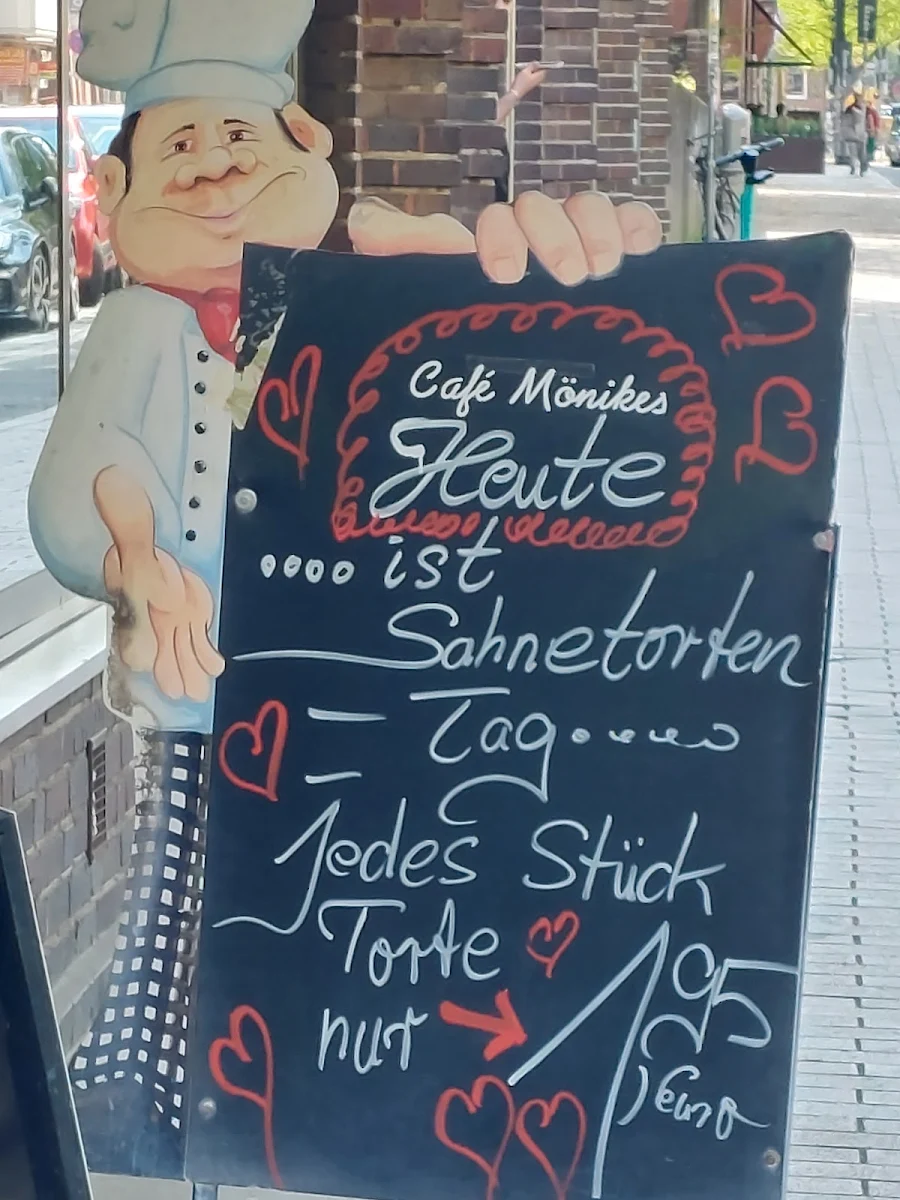 Café Mönikes
Heute
.... ist
Sahnetorten
- Tag....
Jedes Stück
Torte
nur 1,95
Euro